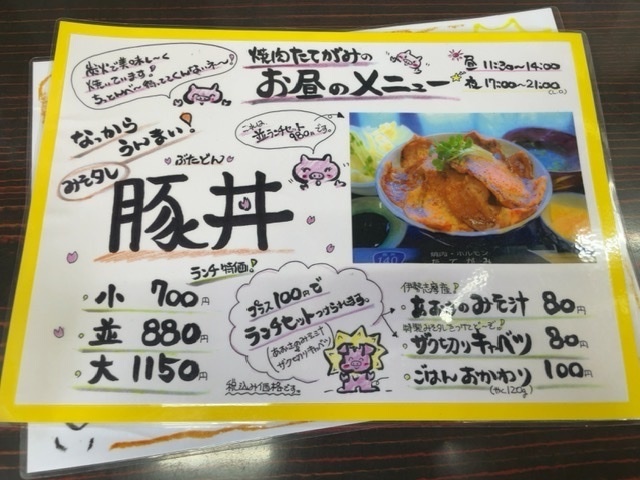 炭火で美味し〜く
焼いています!
ちっとんべ〜待っててくんない
焼肉たてがみの
お昼のメニュー
昼 11:30〜14:00
夜 17:00〜21:00
(L.O)
なっから
うんまい!
これは、
並ランチセット
980円です。
みそタレ
ぶたどん
豚丼
焼肉・ホルモン
たてがみ
ランチ特価!
・小 700円
・並 880円
・大 1150円
プラス100円で
ランチセットつけられます。
(あおさのみそ汁
ザク切りキャベツ)
税込み価格です。
伊勢志摩産!
・あおさのみそ汁 80円
特製みそタレをつけてどーぞ!
・ザク切りキャベツ 80円
・ごはんおかわり 100円
(約120g)